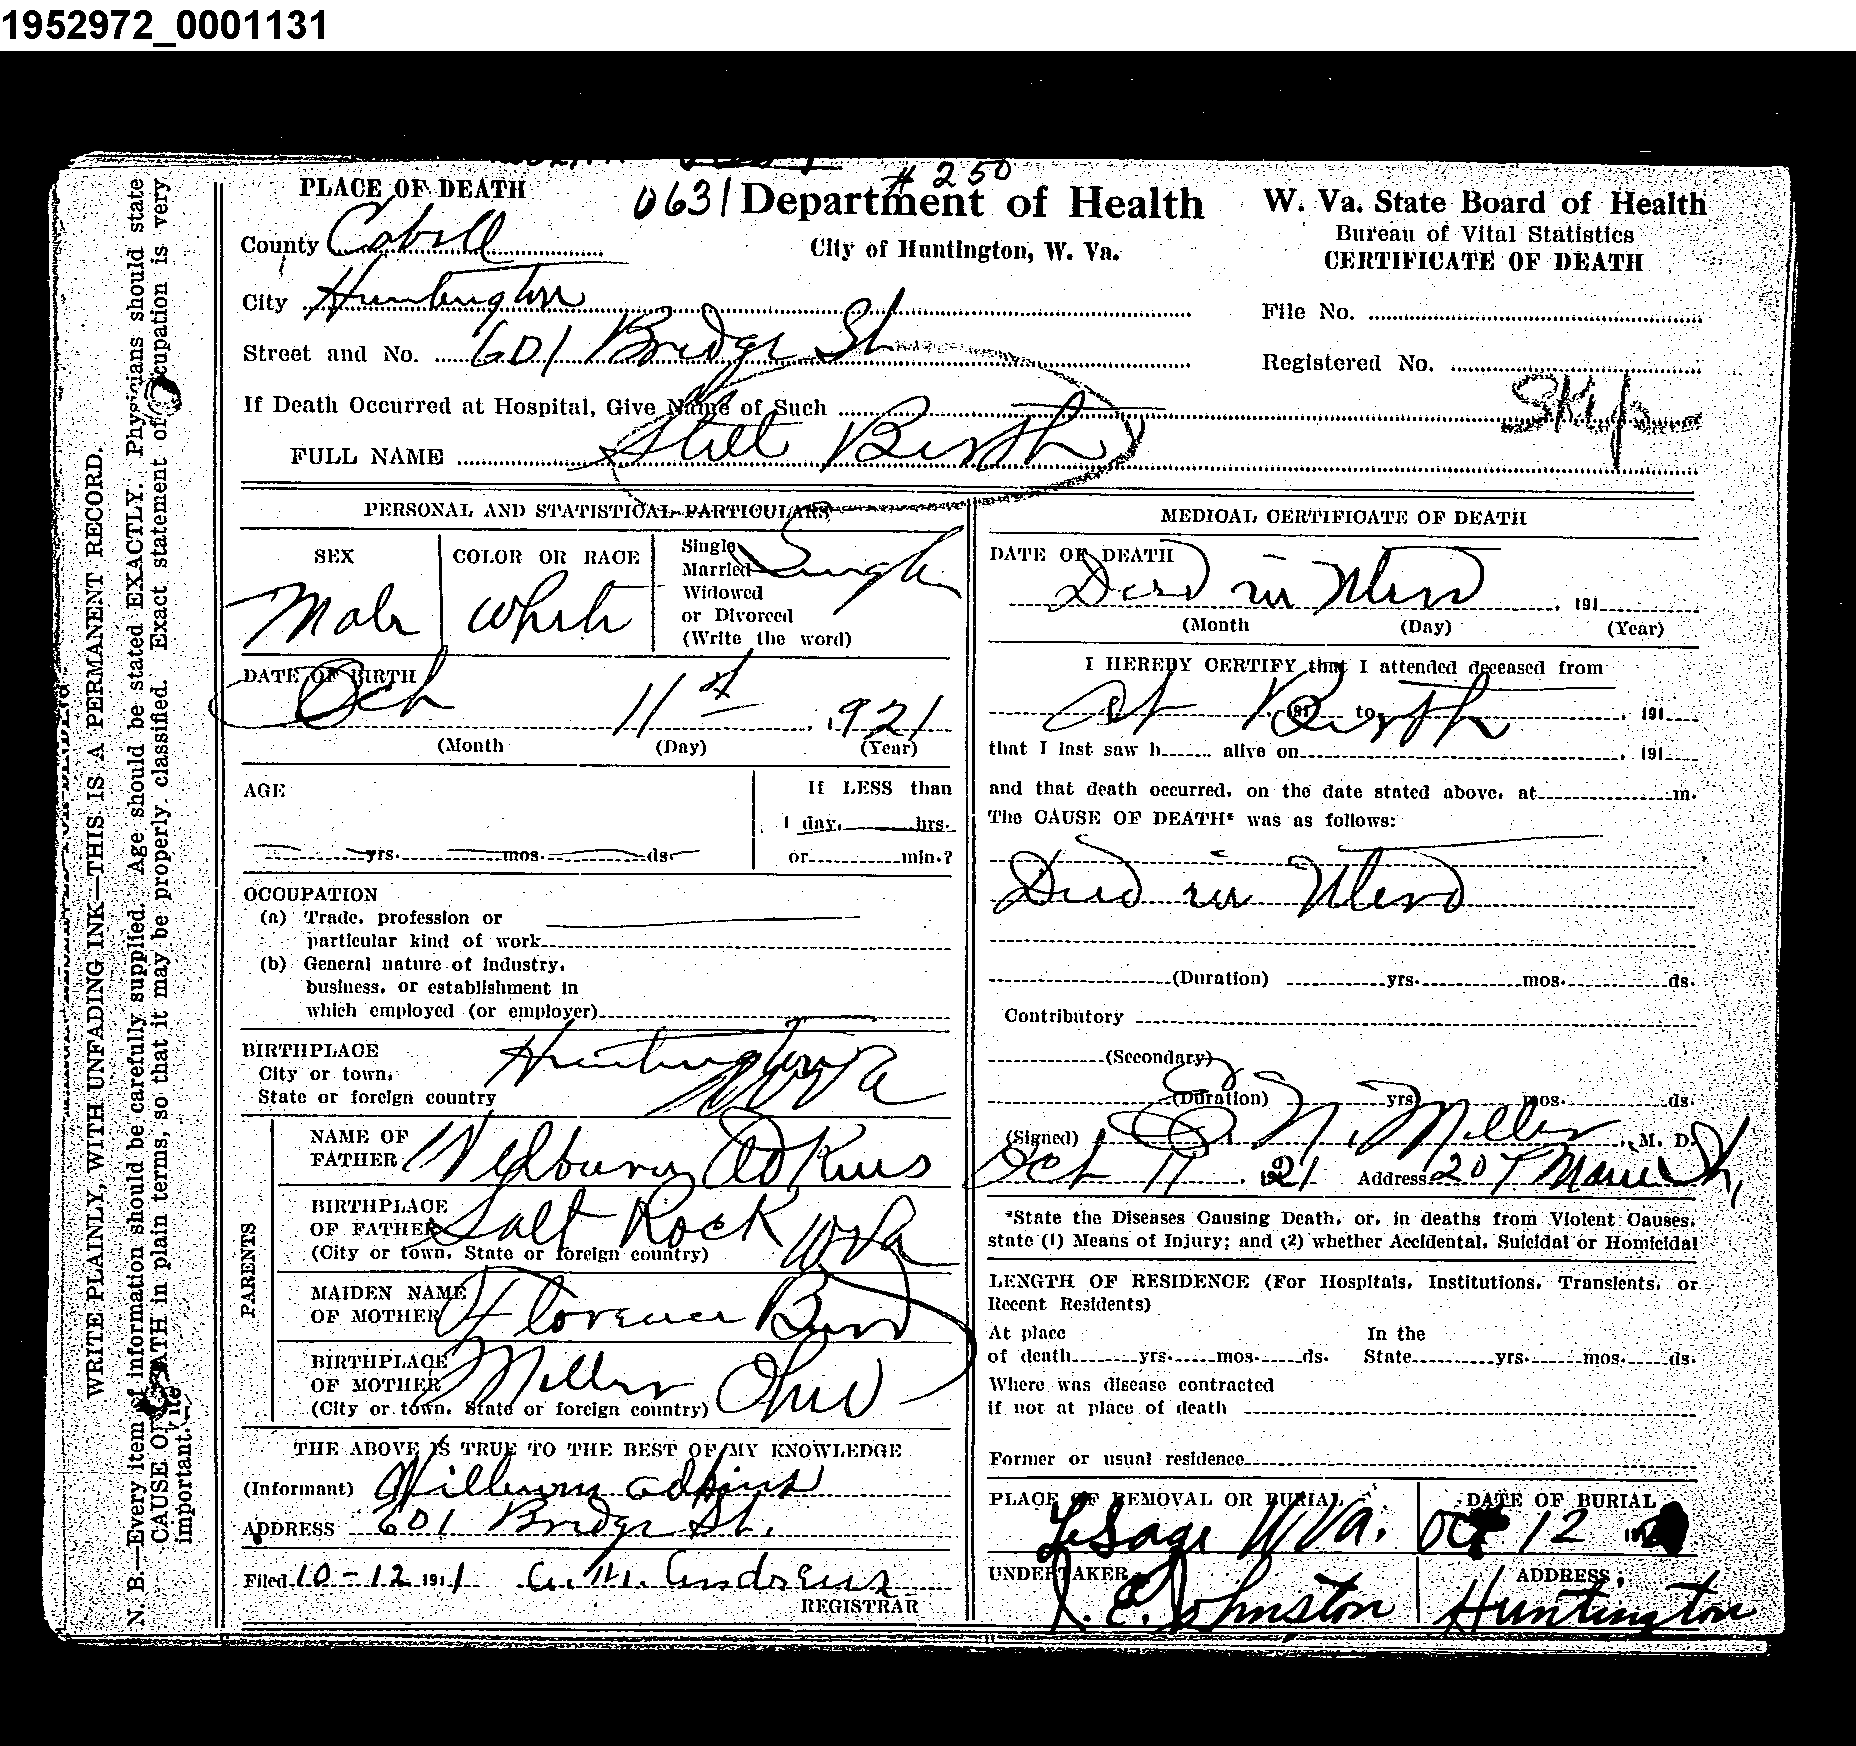 1952972_0001131
PLACE OF DEATH
County Cabell
City Huntington
Street and No. 601 Bridge St
If Death Occurred at Hospital, Give Name of Such
FULL NAME Still Birth
0631
# 250
Department of Health
City of Huntington, W. Va.
W. Va. State Board of Health
Bureau of Vital Statistics
CERTIFICATE OF DEATH
File No.
Registered No.
Skip
PERSONAL AND STATISTICAL PARTICULARS
SEX
Male
COLOR OR RACE
White
Single
Married
Widowed
or Divorced
(Write the word)
Single
DATE OF BIRTH
Oct 11st 1921
(Month (Day) (Year)
AGE
yrs. mos. ds.
If LESS than
1 day, hrs.
or min.?
OCCUPATION
(a) Trade, profession or
particular kind of work
(b) General nature of industry,
business, or establishment in
which employed (or employer)
BIRTHPLACE
City or town,
State or foreign country
Huntington
W Va
PARENTS
NAME OF
FATHER Wilburn Adkins
BIRTHPLACE
OF FATHER Salt Rock W Va
(City or town, State or foreign country)
MAIDEN NAME
OF MOTHER Florence
BIRTHPLACE
OF MOTHER Miller Ohio
(City or town, State or foreign country)
THE ABOVE IS TRUE TO THE BEST OF MY KNOWLEDGE
(Informant) Wilburn Adkins
ADDRESS 601 Bridge St.
Filed 10-12 191 1
REGISTRAR
MEDICAL CERTIFICATE OF DEATH
DATE OF DEATH
Died in Utero , 191
(Month (Day) (Year)
I HEREBY CERTIFY that I attended deceased from
At Birth 191 to , 191
that I last saw h alive on , 191
and that death occurred, on the date stated above, at m.
The CAUSE OF DEATH* was as follows:
Died in Utero
(Duration) yrs. mos. ds.
Contributory
(Secondary)
(Duration) yrs. mos. ds.
(Signed) N. Miller , M. D.
Oct 11 . 1921 Address 207 Main St,
*State the Diseases Causing Death, or, in deaths from Violent Causes,
state (1) Means of Injury; and (2) whether Accidental, Suicidal or Homicidal
LENGTH OF RESIDENCE (For Hospitals, Institutions, Transients, or
Recent Residents)
At place
of death yrs. mos. ds.
In the
State yrs. mos. ds.
Where was disease contracted
if not at place of death
Former or usual residence
PLACE OF REMOVAL OR BURIAL
LeSage W Va.
DATE OF BURIAL
Oct 12
UNDERTAKER
E. Johnston
ADDRESS
Huntington
WRITE PLAINLY, WITH UNFADING INK—THIS IS A PERMANENT RECORD.
N. B.—Every item of information should be carefully supplied. Age should be stated EXACTLY. Physicians should state
CAUSE OF DEATH in plain terms, so that it may be properly classified. Exact statement of occupation is very
important.